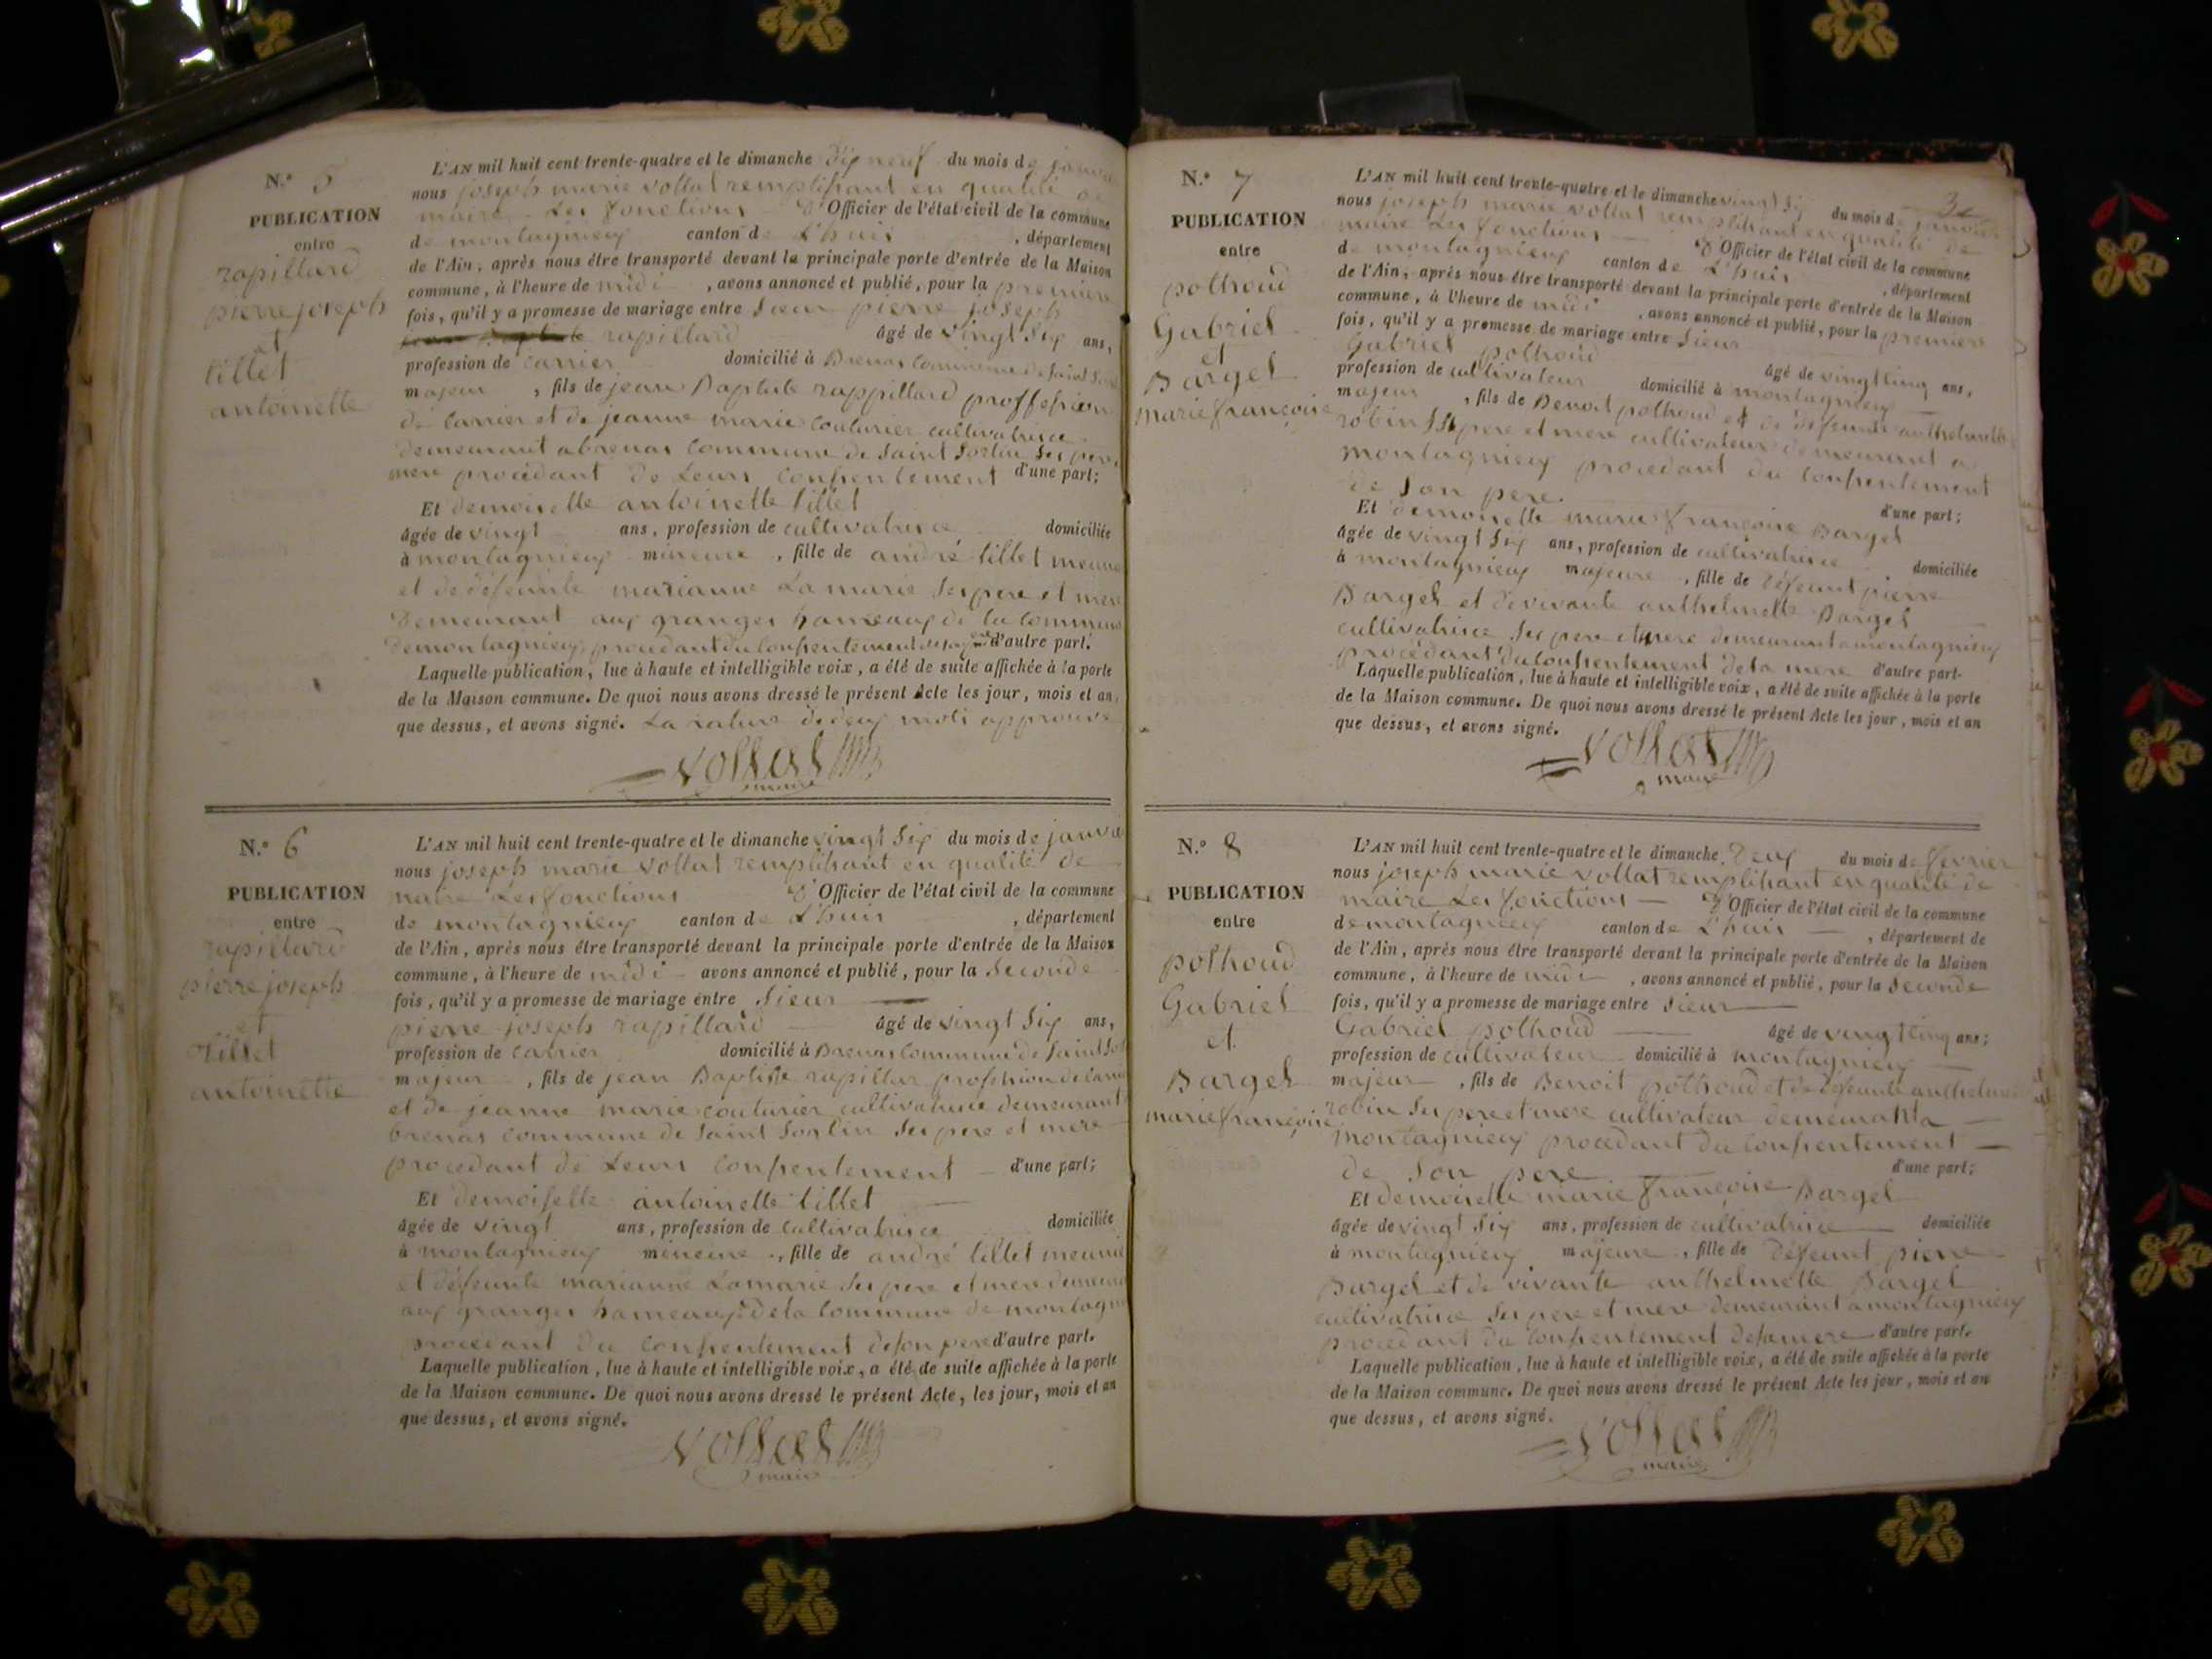 N.° 5
PUBLICATION
entre
rapillard
pierre joseph
et
tillet
antoinette
L'AN mil huit cent trente-quatre et le dimanche dix neuf du mois de janvi
nous joseph marie vottat remplissant en qualité de
maire Les fonctions d'Officier de l'état civil de la commune
de montagnieux canton de L'huis , département
de l'Ain, après nous être transporté devant la principale porte d'entrée de la Maison
commune, à l'heure de midi , avons annoncé et publié, pour la premiere
fois, qu'il y a promesse de mariage entre Sieur pierre joseph
rapillard âgé de vingt Six ans,
profession de carrier domicilié à Brenas Commune de Saint
majeur , fils de jean Baptiste rappillard proffession
de carrier et de jeanne marie couturier cultivatrice
demeurant a brenas commune de Saint Sorlin Ses pere
mere procédant de Leurs Consentement d'une part;
Et demoiselle antoinette tillet
âgée de vingt ans, profession de cultivatrice domiciliée
à montagnieux mineure , fille de andré tillet meunier
et de défeunte marianne Lamarie Ses pere et mere
Demeurant aux granges hameaux de la commune
de montagnieux procedant du consentement de d'autre part.
Laquelle publication, lue à haute et intelligible voix, a été de suite affichée à la porte
de la Maison commune. De quoi nous avons dressé le présent Acte les jour, mois et an,
que dessus, et avons signé. La rature de deux mots approuvé
vottat
maire
N.° 6
PUBLICATION
entre
rapillard
pierre joseph
et
tillet
antoinette
L'AN mil huit cent trente-quatre et le dimanche vingt Six du mois de janvie
nous joseph marie vottat remplissant en qualité de
maire Les fonctions d'Officier de l'état civil de la commune
de montagnieux canton de L'huis , département
de l'Ain, après nous être transporté devant la principale porte d'entrée de la Maison
commune, à l'heure de midi avons annoncé et publié, pour la Seconde
fois, qu'il y a promesse de mariage entre Sieur
pierre joseph rapillard âgé de vingt Six ans,
profession de carrier domicilié à Brenas Commune de Saint Sor
majeur , fils de jean Baptiste rapillar profession de
et de jeanne marie couturier cultivatrice demeurant
brenas commune de Saint Sorlin Ses pere et mere
procedant de Leurs Consentement d'une part;
Et demoiselle antoinette tillet
âgée de vingt ans, profession de cultivatrice domiciliée
à montagnieux mineure , fille de andré tillet meunie
et défeunte marianne Lamarie Ses pere et mere
aux granges hameaux de la commune de montagni
procedant du consentement de son pere d'autre part.
Laquelle publication, lue à haute et intelligible voix, a été de suite affichée à la porte
de la Maison commune. De quoi nous avons dressé le présent Acte, les jour, mois et an
que dessus, et avons signé.
vottat
maire
N.° 7
PUBLICATION
entre
pothoud
Gabriel
et
Bargel
marie françoise
L'AN mil huit cent trente-quatre et le dimanche vingt Six du mois de janvier
nous joseph marie vottat remplissant en qualité de
maire Les fonctions d'Officier de l'état civil de la commune
de montagnieux canton de L'huis , département
de l'Ain, après nous être transporté devant la principale porte d'entrée de la Maison
commune, à l'heure de midi , avons annoncé et publié, pour la premiere
fois, qu'il y a promesse de mariage entre Sieur
Gabriel pothoud âgé de vingt cinq ans,
profession de cultivateur domicilié à montagnieux
majeur , fils de Benoit pothoud et de défeunte anthelmette
robin Ses pere et mere cultivateur demeurant a
montagnieux procedant du consentement
de Son pere. d'une part;
Et demoiselle marie françoise Bargel
âgée de vingt Six ans, profession de cultivatrice domiciliée
à montagnieux majeure , fille de défeunt pierre
Bargel et de vivante anthelmette Bargel
cultivatrice Ses pere et mere demeurant a montagnieux
procédant du consentement de sa mere d'autre part.
Laquelle publication, lue à haute et intelligible voix, a été de suite affichée à la porte
de la Maison commune. De quoi nous avons dressé le présent Acte les jour, mois et an
que dessus, et avons signé.
vottat
maire
N.° 8
PUBLICATION
entre
pothoud
Gabriel
et
Bargel
marie françoise
L'AN mil huit cent trente-quatre et le dimanche deux du mois de fevrier
nous joseph marie vottat remplissant en qualité de
maire Les fonctions d'Officier de l'état civil de la commune
de montagnieux canton de L'huis , département de
de l'Ain, après nous être transporté devant la principale porte d'entrée de la Maison
commune, à l'heure de midi , avons annoncé et publié, pour la Seconde
fois, qu'il y a promesse de mariage entre Sieur
Gabriel pothoud âgé de vingt cinq ans;
profession de cultivateur domicilié à montagnieux
majeur , fils de Benoit pothoud et de défeunte anthelme
robin Ses pere et mere cultivateur demeurant a
montagnieux procedant du consentement
de Son pere d'une part;
Et demoiselle marie françoise Bargel
âgée de vingt Six ans, profession de cultivatrice domiciliée
à montagnieux majeure , fille de défeunt pierre
Bargel et de vivante anthelmette Bargel
cultivatrice Ses pere et mere demeurant a montagnieux
procedant du consentement de sa mere d'autre part.
Laquelle publication, lue à haute et intelligible voix, a été de suite affichée à la porte
de la Maison commune. De quoi nous avons dressé le présent Acte les jour, mois et an
que dessus, et avons signé.
vottat
maire